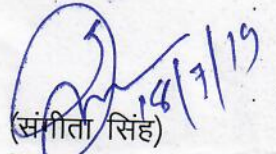 18/7/19
(संगीता सिंह)